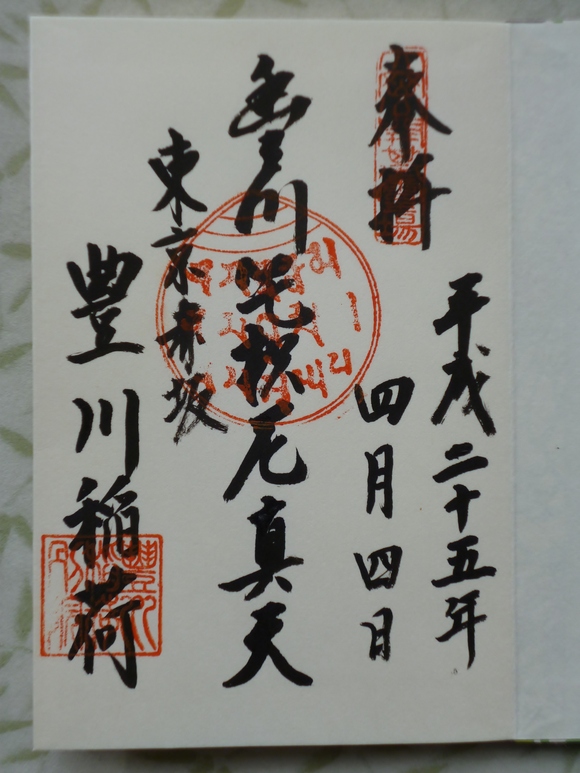 奉拝
平成二十五年
四月四日
豊川吒枳尼真天
東京赤坂
豊川稲荷